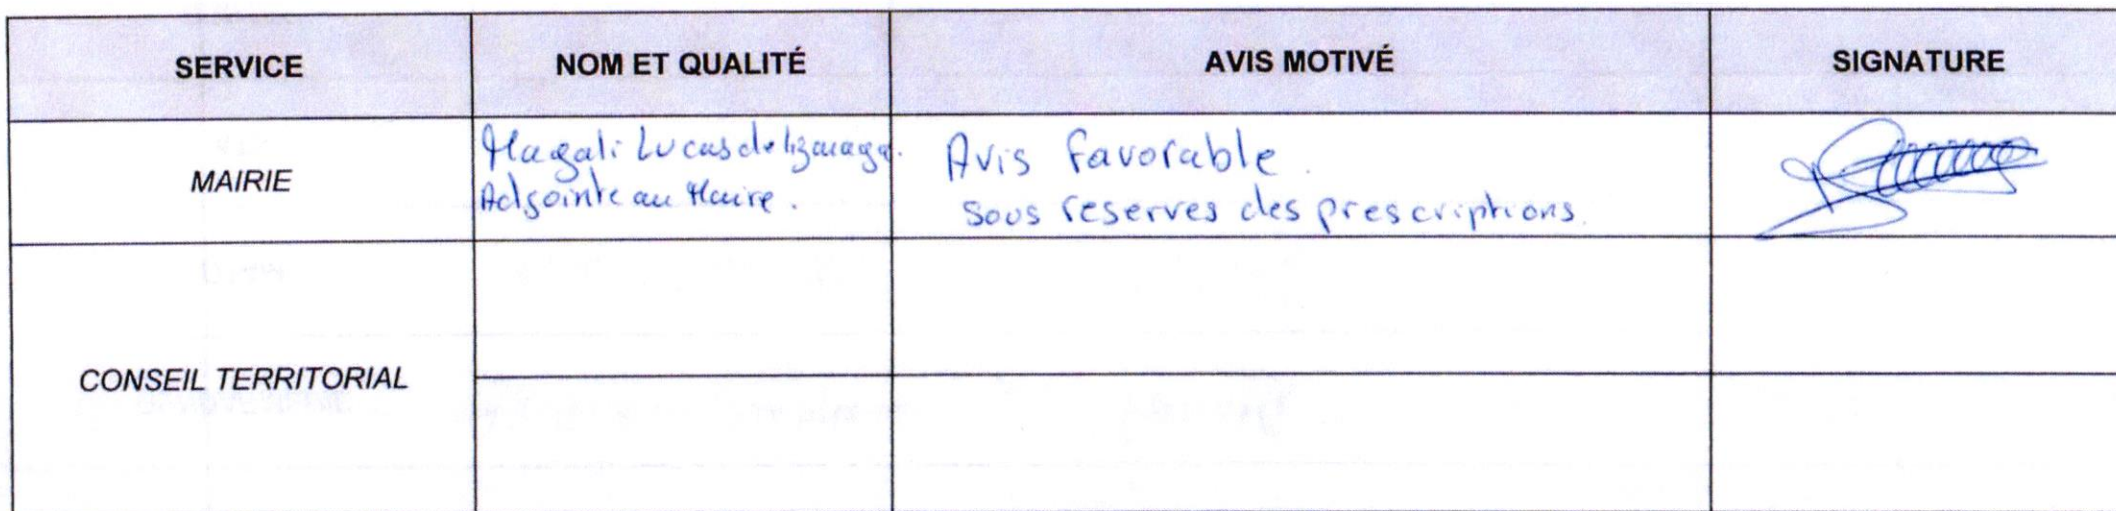 SERVICE NOM ET QUALITÉ AVIS MOTIVÉ SIGNATURE
MAIRIE
Magali Lucas de
Adjointe au Maire.
Avis favorable.
sous reserves des prescriptions.
CONSEIL TERRITORIAL